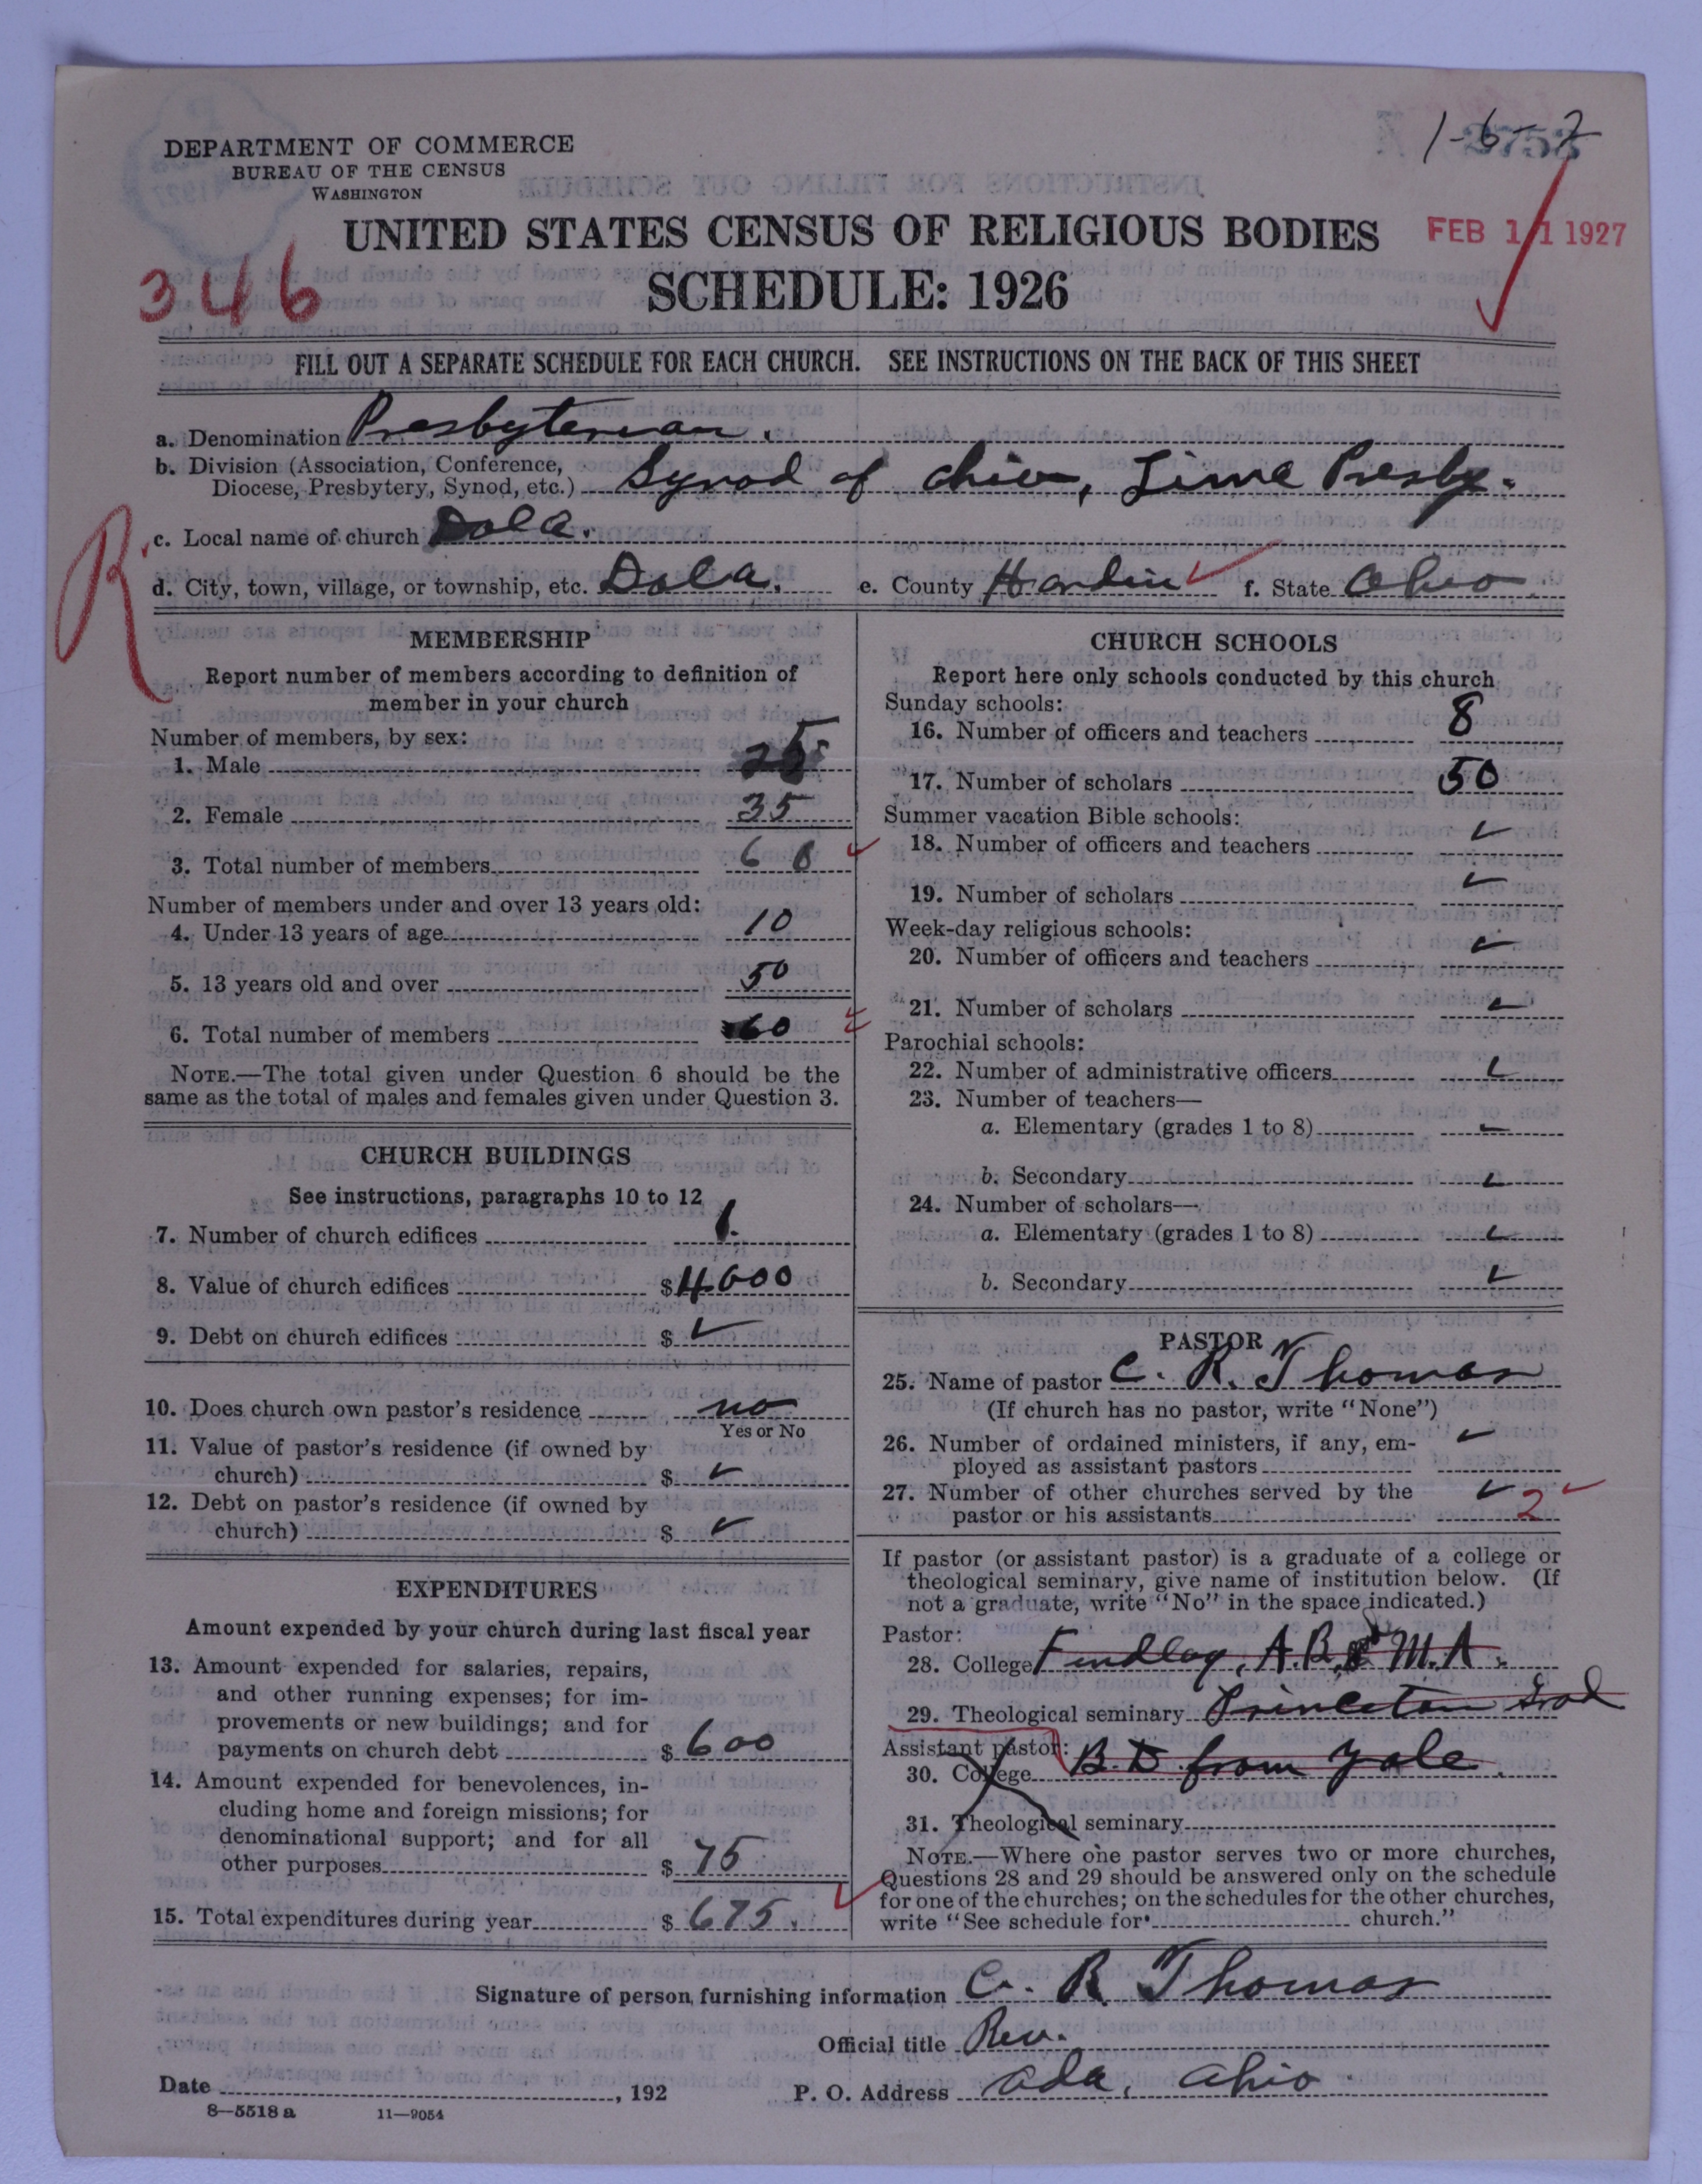 1-6-7
2753
DEPARTMENT OF COMMERCE
BUREAU OF THE CENSUS
WASHINGTON
UNITED STATES CENSUS OF RELIGIOUS BODIES
FEB 11 1927
346
SCHEDULE: 1926
FILL OUT A SEPARATE SCHEDULE FOR EACH CHURCH. SEE INSTRUCTIONS ON THE BACK OF THIS SHEET
a. Denomination Presbyterian.
b. Division (Association, Conference,
Diocese, Presbytery, Synod, etc.) Synod of Ohio, Lima Presby.
R
c. Local name of church Dola.
d. City, town, village, or township, etc. Dola. e. County Hardin f. State Ohio
MEMBERSHIP
Report number of members according to definition of
member in your church
Number of members, by sex:
1. Male 25
2. Female 35
3. Total number of members 60
Number of members under and over 13 years old:
4. Under 13 years of age 10
5. 13 years old and over 50
6. Total number of members 60
NOTE.—The total given under Question 6 should be the
same as the total of males and females given under Question 3.
CHURCH BUILDINGS
See instructions, paragraphs 10 to 12
7. Number of church edifices 1.
8. Value of church edifices $4000
9. Debt on church edifices $ ✓
10. Does church own pastor's residence no
Yes or No
11. Value of pastor's residence (if owned by
church) $ ✓
12. Debt on pastor's residence (if owned by
church) $ ✓
EXPENDITURES
Amount expended by your church during last fiscal year
13. Amount expended for salaries, repairs,
and other running expenses; for im-
provements or new buildings; and for
payments on church debt $ 600
14. Amount expended for benevolences, in-
cluding home and foreign missions; for
denominational support; and for all
other purposes $ 75
15. Total expenditures during year $ 675.
CHURCH SCHOOLS
Report here only schools conducted by this church
Sunday schools:
16. Number of officers and teachers 8
17. Number of scholars 50
Summer vacation Bible schools:
18. Number of officers and teachers ✓
19. Number of scholars ✓
Week-day religious schools:
20. Number of officers and teachers ✓
21. Number of scholars ✓
Parochial schools:
22. Number of administrative officers ✓
23. Number of teachers—
a. Elementary (grades 1 to 8) ✓
b. Secondary ✓
24. Number of scholars—
a. Elementary (grades 1 to 8) ✓
b. Secondary ✓
PASTOR
25. Name of pastor C. R. Thomas
(If church has no pastor, write "None")
26. Number of ordained ministers, if any, em-
ployed as assistant pastors ✓
27. Number of other churches served by the
pastor or his assistants ✓ 2 ✓
If pastor (or assistant pastor) is a graduate of a college or
theological seminary, give name of institution below. (If
not a graduate, write "No" in the space indicated.)
Pastor:
28. College Findlay, A.B, & M.A.
29. Theological seminary Princeton Grad
Assistant pastor: B.D from Yale.
30. College
31. Theological seminary
NOTE.—Where one pastor serves two or more churches,
Questions 28 and 29 should be answered only on the schedule
for one of the churches; on the schedules for the other churches,
write "See schedule for church."
Signature of person furnishing information C. R. Thomas
Official title Rev.
Date , 192 P. O. Address Ada, Ohio.
8—5518 a 11—9054